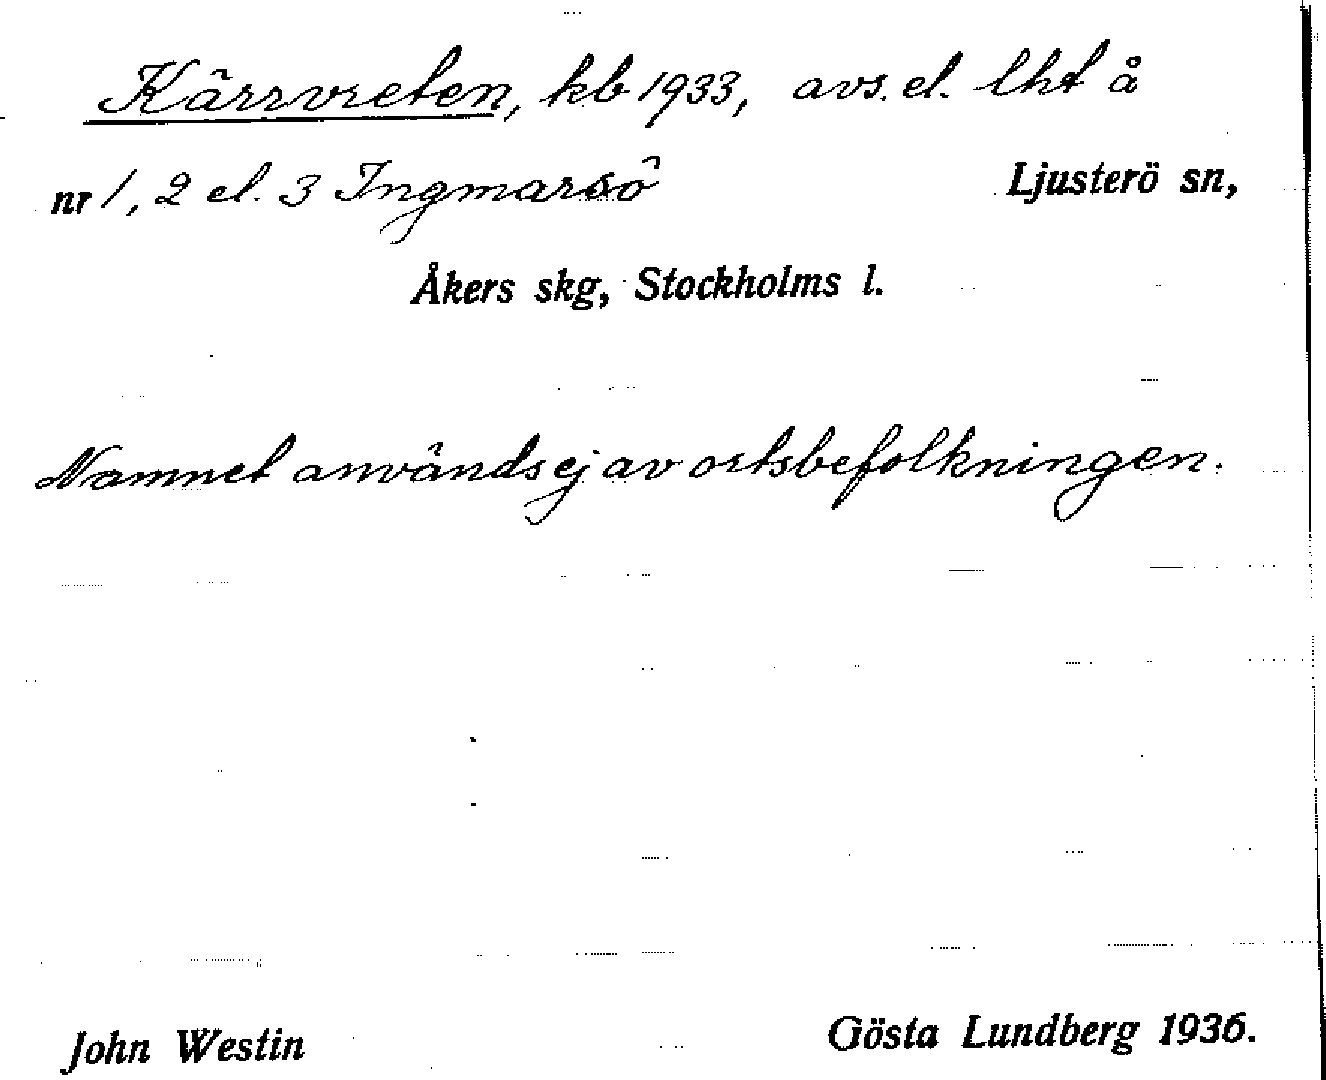 Kärrvreten, kb 1933, avs. el. lht å
nr 1, 2 el. 3 Ingmarsö Ljusterö sn,
Åkers skg, Stockholms l.
Namnet används ej av ortsbefolkningen.
John Westin Gösta Lundberg 1936.